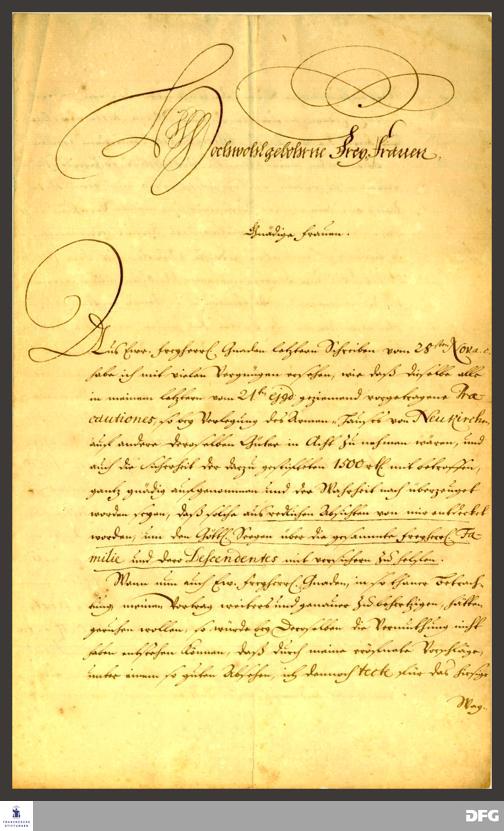 Hochwohlgebohrne Frey Frauen,
Gnädige Frauen.
Aus Ewr. Freyherrl. Gnaden letztern Schreiben vom 28sten Nov. a. c.
habe ich mit vielen Vergnügen ersehen, wie daß dieselbe alle
in meinem letztern vom 21ten geziemend vorgetragene Prae-
cautiones, so bey Verlegung des Armen-Hauses von Neukirchen
auf andere deroselben Güter in Acht zu nehmen wären, und
auch die Sicherheit der darzu gestifteten 1500 rtl mit betroffen,
gantz gnädig aufgenommen und der Wahrheit nach überzeuget
worden seyen, daß solche aus redlichen Absichten von mir entdecket
worden, um den Göttl. Seegen über die gesammte Freyherrl. Fa-
milie und dero Descendentes mit versichern zu helffen.
Wann nun auch Ew. Freyherrl. Gnaden, in so theure Betrach-
tung meinen Vortrag weiters und genauer zu beherzigen, hätten
geruhen wollen, so würde bey Deroselben die Vermuthung nicht
haben entstehen können, daß durch meine eröfnete Vorschläge,
unter einem so guten Absehen, ich dennoch tecte für das hiesige
Way-
FRANCKESCHE
STIFTUNGEN
DFG